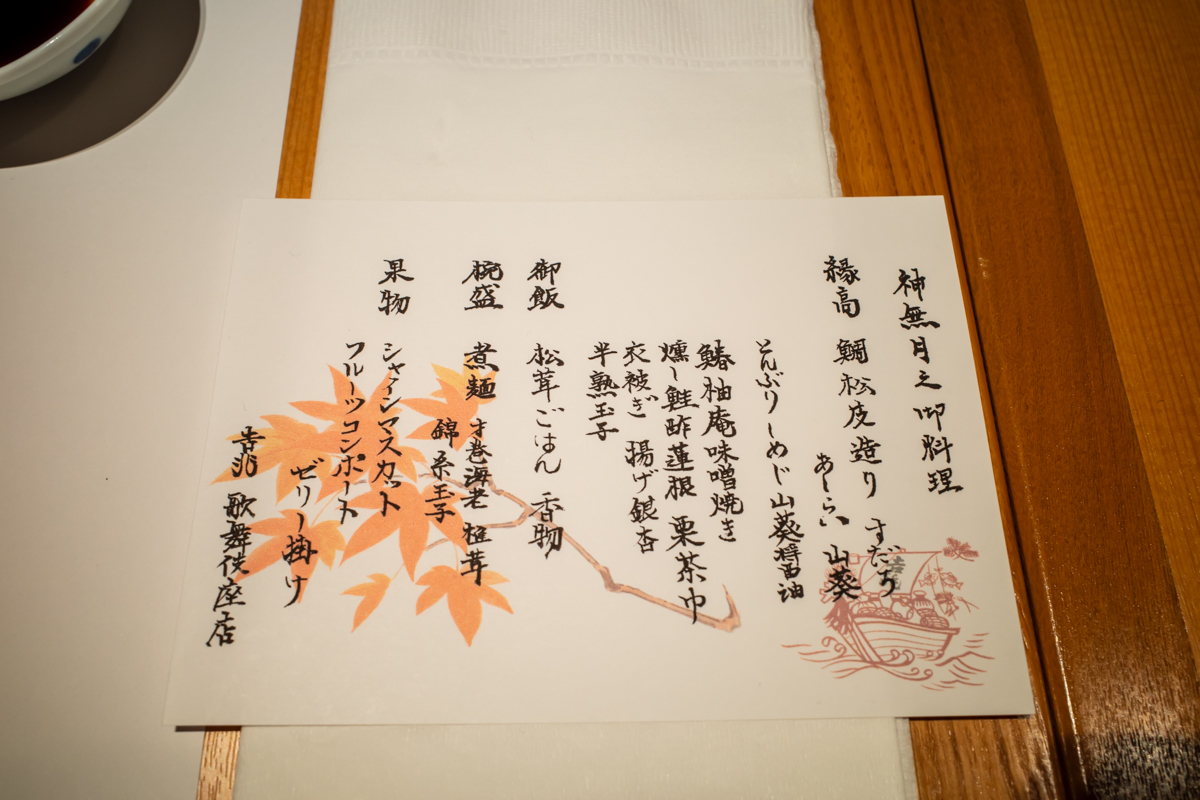 神無月之御料理
縁高 鯛松皮造り すだち
あしらい 山葵
とんぶりしめじ山葵醤油
鰆柚庵味噌焼き
燻し鮭酢蓮根 栗茶巾
衣被ぎ 揚げ銀杏
半熟玉子
御飯 松茸ごはん 香物
椀盛 煮麺 才巻海老 椎茸
錦糸玉子
果物 シャインマスカット
フルーツコンポート
ゼリー掛け
吉兆 歌舞伎座店